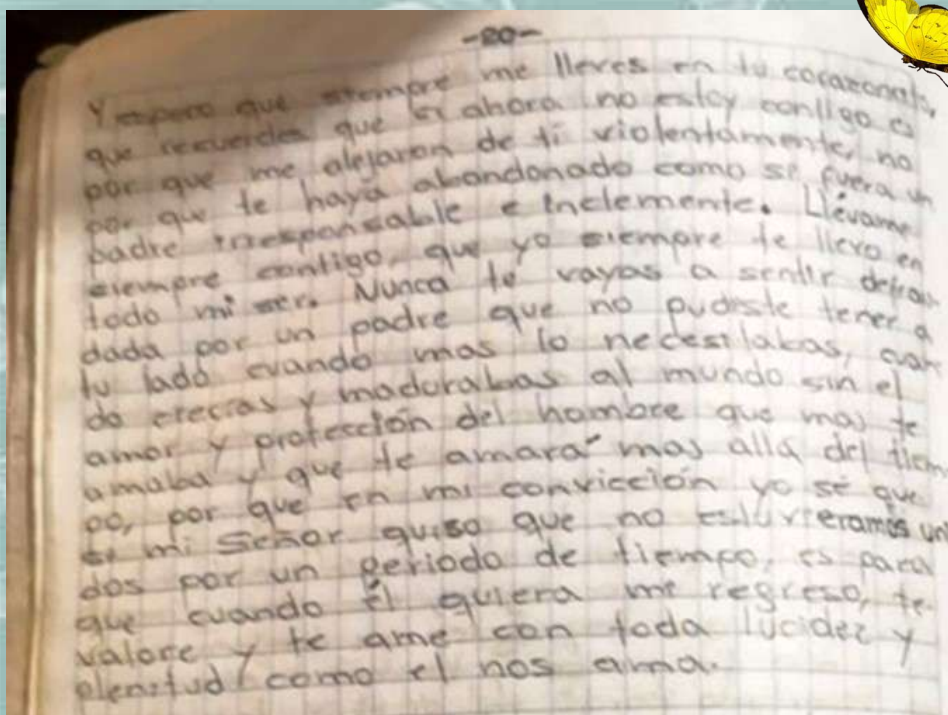 -20-
Y espero que siempre me lleves en tu corazoncito,
que recuerdes que si ahora no estoy contigo es
por que me alejaron de ti violentamente, no
por que te haya abandonado como si fuera un
padre irresponsable e inclemente. Llévame
siempre contigo, que yo siempre te llevo en
todo mi ser. Nunca te vayas a sentir defrau-
dada por un padre que no pudiste tener a
tu lado cuando mas lo necesitabas, cuan
do crecias y madurabas al mundo sin el
amor y protección del hombre que mas te
amaba y que te amará mas allá del tiem
po, por que en mi convicción yo sé que
si mi Señor quiso que no estuvieramos uni
dos por un periodo de tiempo, es para
que cuando él quiera mi regreso, te
valore y te ame con toda lucidez y
plenitud como el nos ama.